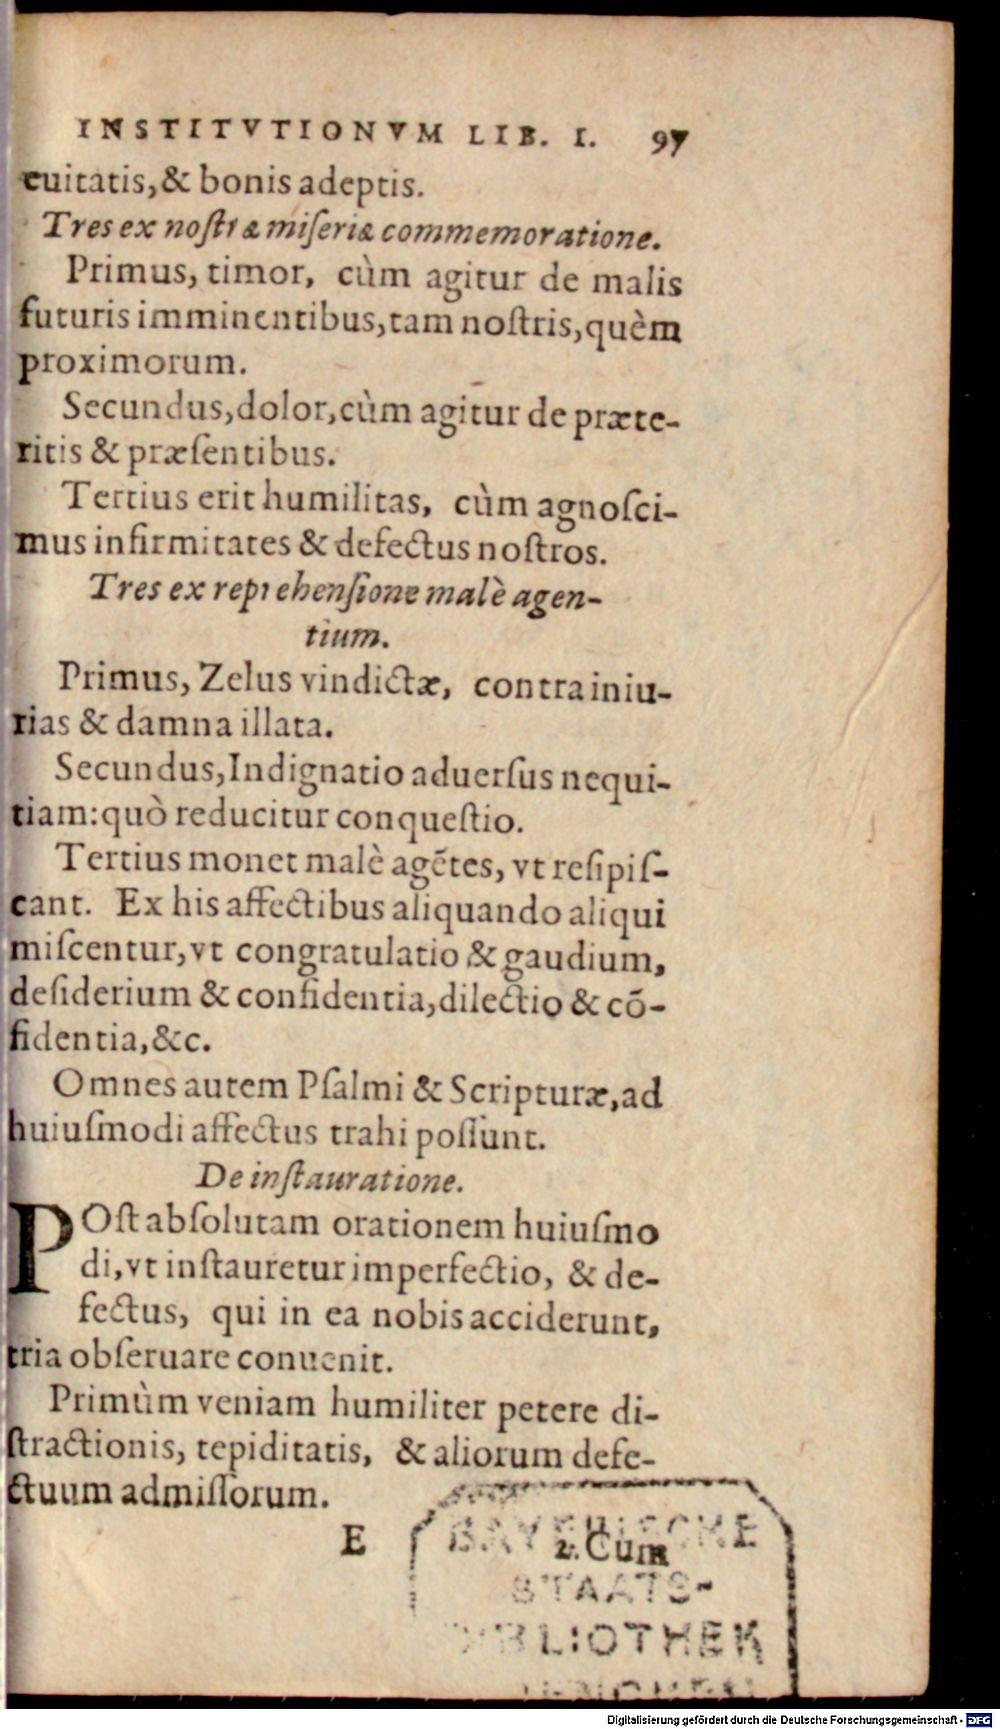 INSTITVTIONVM LIB. I. 97
cuitatis,& bonis adeptis.
Tres ex noſtræ miſeriæ commemoratione.
Primus, timor, cùm agitur de malis
futuris imminentibus,tam noſtris,quèm
proximorum.
Secundus,dolor,cùm agitur de præte-
ritis & præſentibus.
Tertius erit humilitas, cùm agnoſci-
mus infirmitates & defectus noſtros.
Tres ex reprehenſione malè agen-
tium.
Primus, Zelus vindictæ, contra iniu-
rias & damna illata.
Secundus,Indignatio aduerſus nequi-
tiam:quò reducitur conqueſtio.
Tertius monet malè agẽtes, vt reſipiſ-
cant. Ex his affectibus aliquando aliqui
miſcentur,vt congratulatio & gaudium,
deſiderium & confidentia,dilectio & cõ-
fidentia,&c.
Omnes autem Pſalmi & Scripturæ,ad
huiuſmodi affectus trahi poſſunt.
De inſtauratione.
POſt abſolutam orationem huiuſmo
di,vt inſtauretur imperfectio, & de-
fectus, qui in ea nobis acciderunt,
tria obſeruare conuenit.
Primùm veniam humiliter petere di-
ſtractionis, tepiditatis, & aliorum defe-
ctuum admiſſorum.
E 2. Cum
BAYERISCHE
STAATS-
BIBLIOTHEK
MUENCHEN
Digitalisierung gefördert durch die Deutsche Forschungsgemeinschaft - DFG